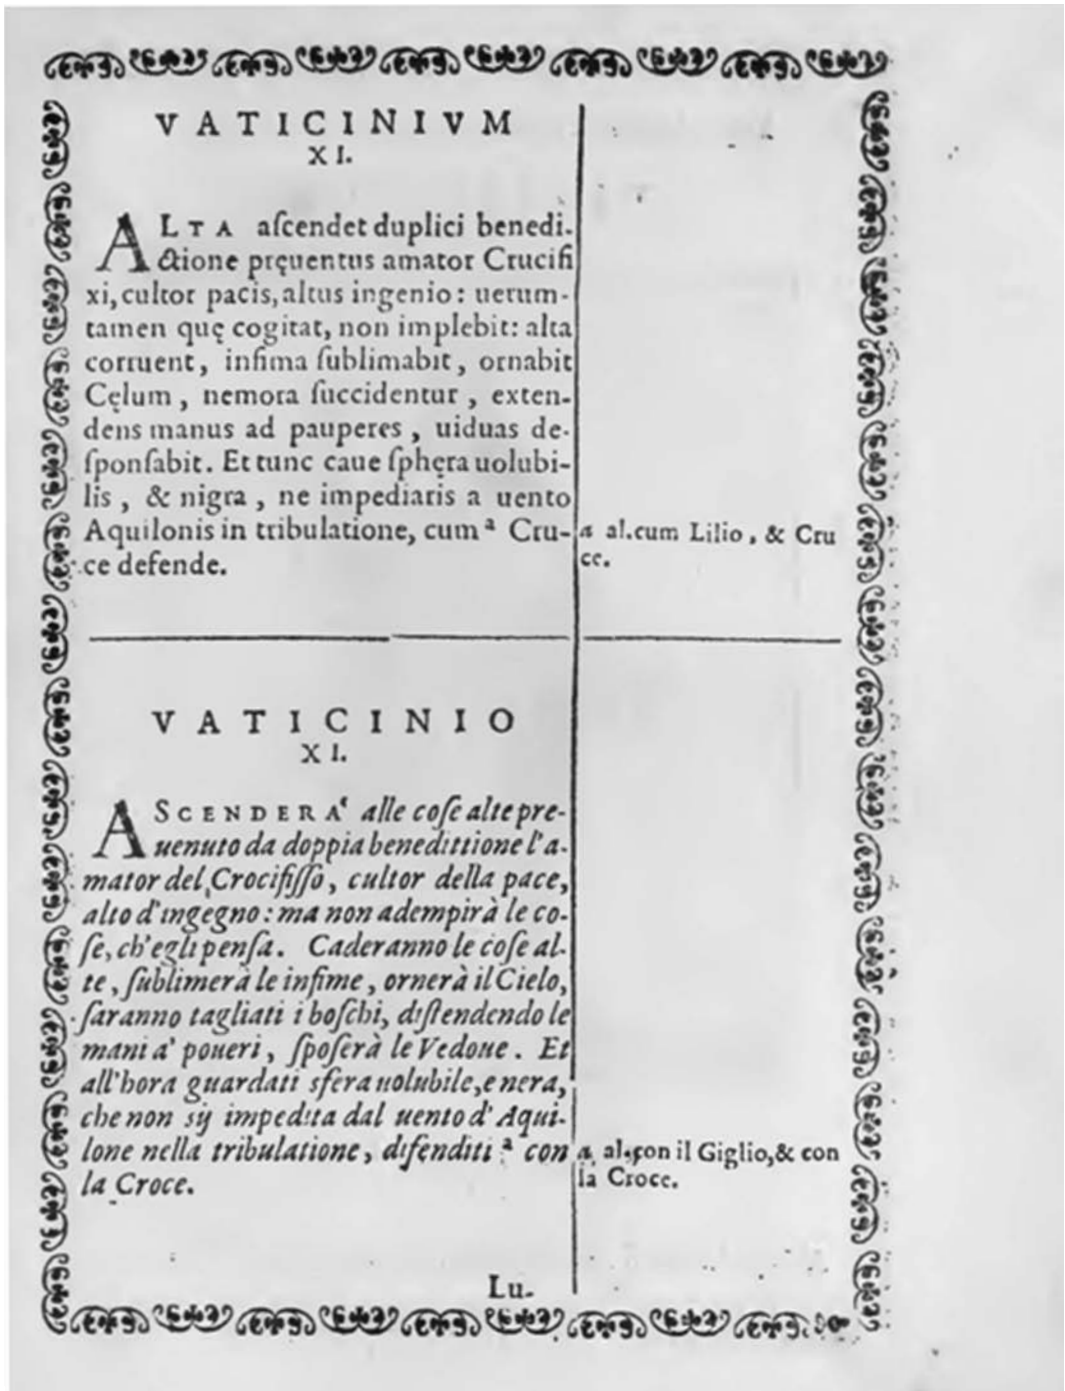 VATICINIVM
XI.
ALTA aſcendet duplici benedi-
ctione pręuentus amator Crucifi
xi, cultor pacis, altus ingenio: uerum-
tamen quę cogitat, non implebit: alta
corruent, infima ſublimabit, ornabit
Cęlum, nemora ſuccidentur, exten-
dens manus ad pauperes, uiduas de-
ſponſabit. Et tunc caue ſphęra uolubi-
lis, & nigra, ne impediaris a uento
Aquilonis in tribulatione, cum ª Cru-
ce defende.
a al. cum Lilio, & Cru
ce.
VATICINIO
XI.
ASCENDERA' alle coſe alte pre-
uenuto da doppia benedittione l'a-
mator del Crocifiſſo, cultor della pace,
alto d'ingegno: ma non adempirà le co-
ſe, ch'egli penſa. Caderanno le coſe al-
te, ſublimerà le infime, ornerà il Cielo,
ſaranno tagliati i boſchi, diſtendendo le
mani a' poueri, ſpoſerà le Vedoue. Et
all'hora guardati sfera uolubile, e nera,
che non sij impedita dal uento d'Aqui-
lone nella tribulatione, difenditi ª con
la Croce.
a al. con il Giglio, & con
la Croce.
Lu-